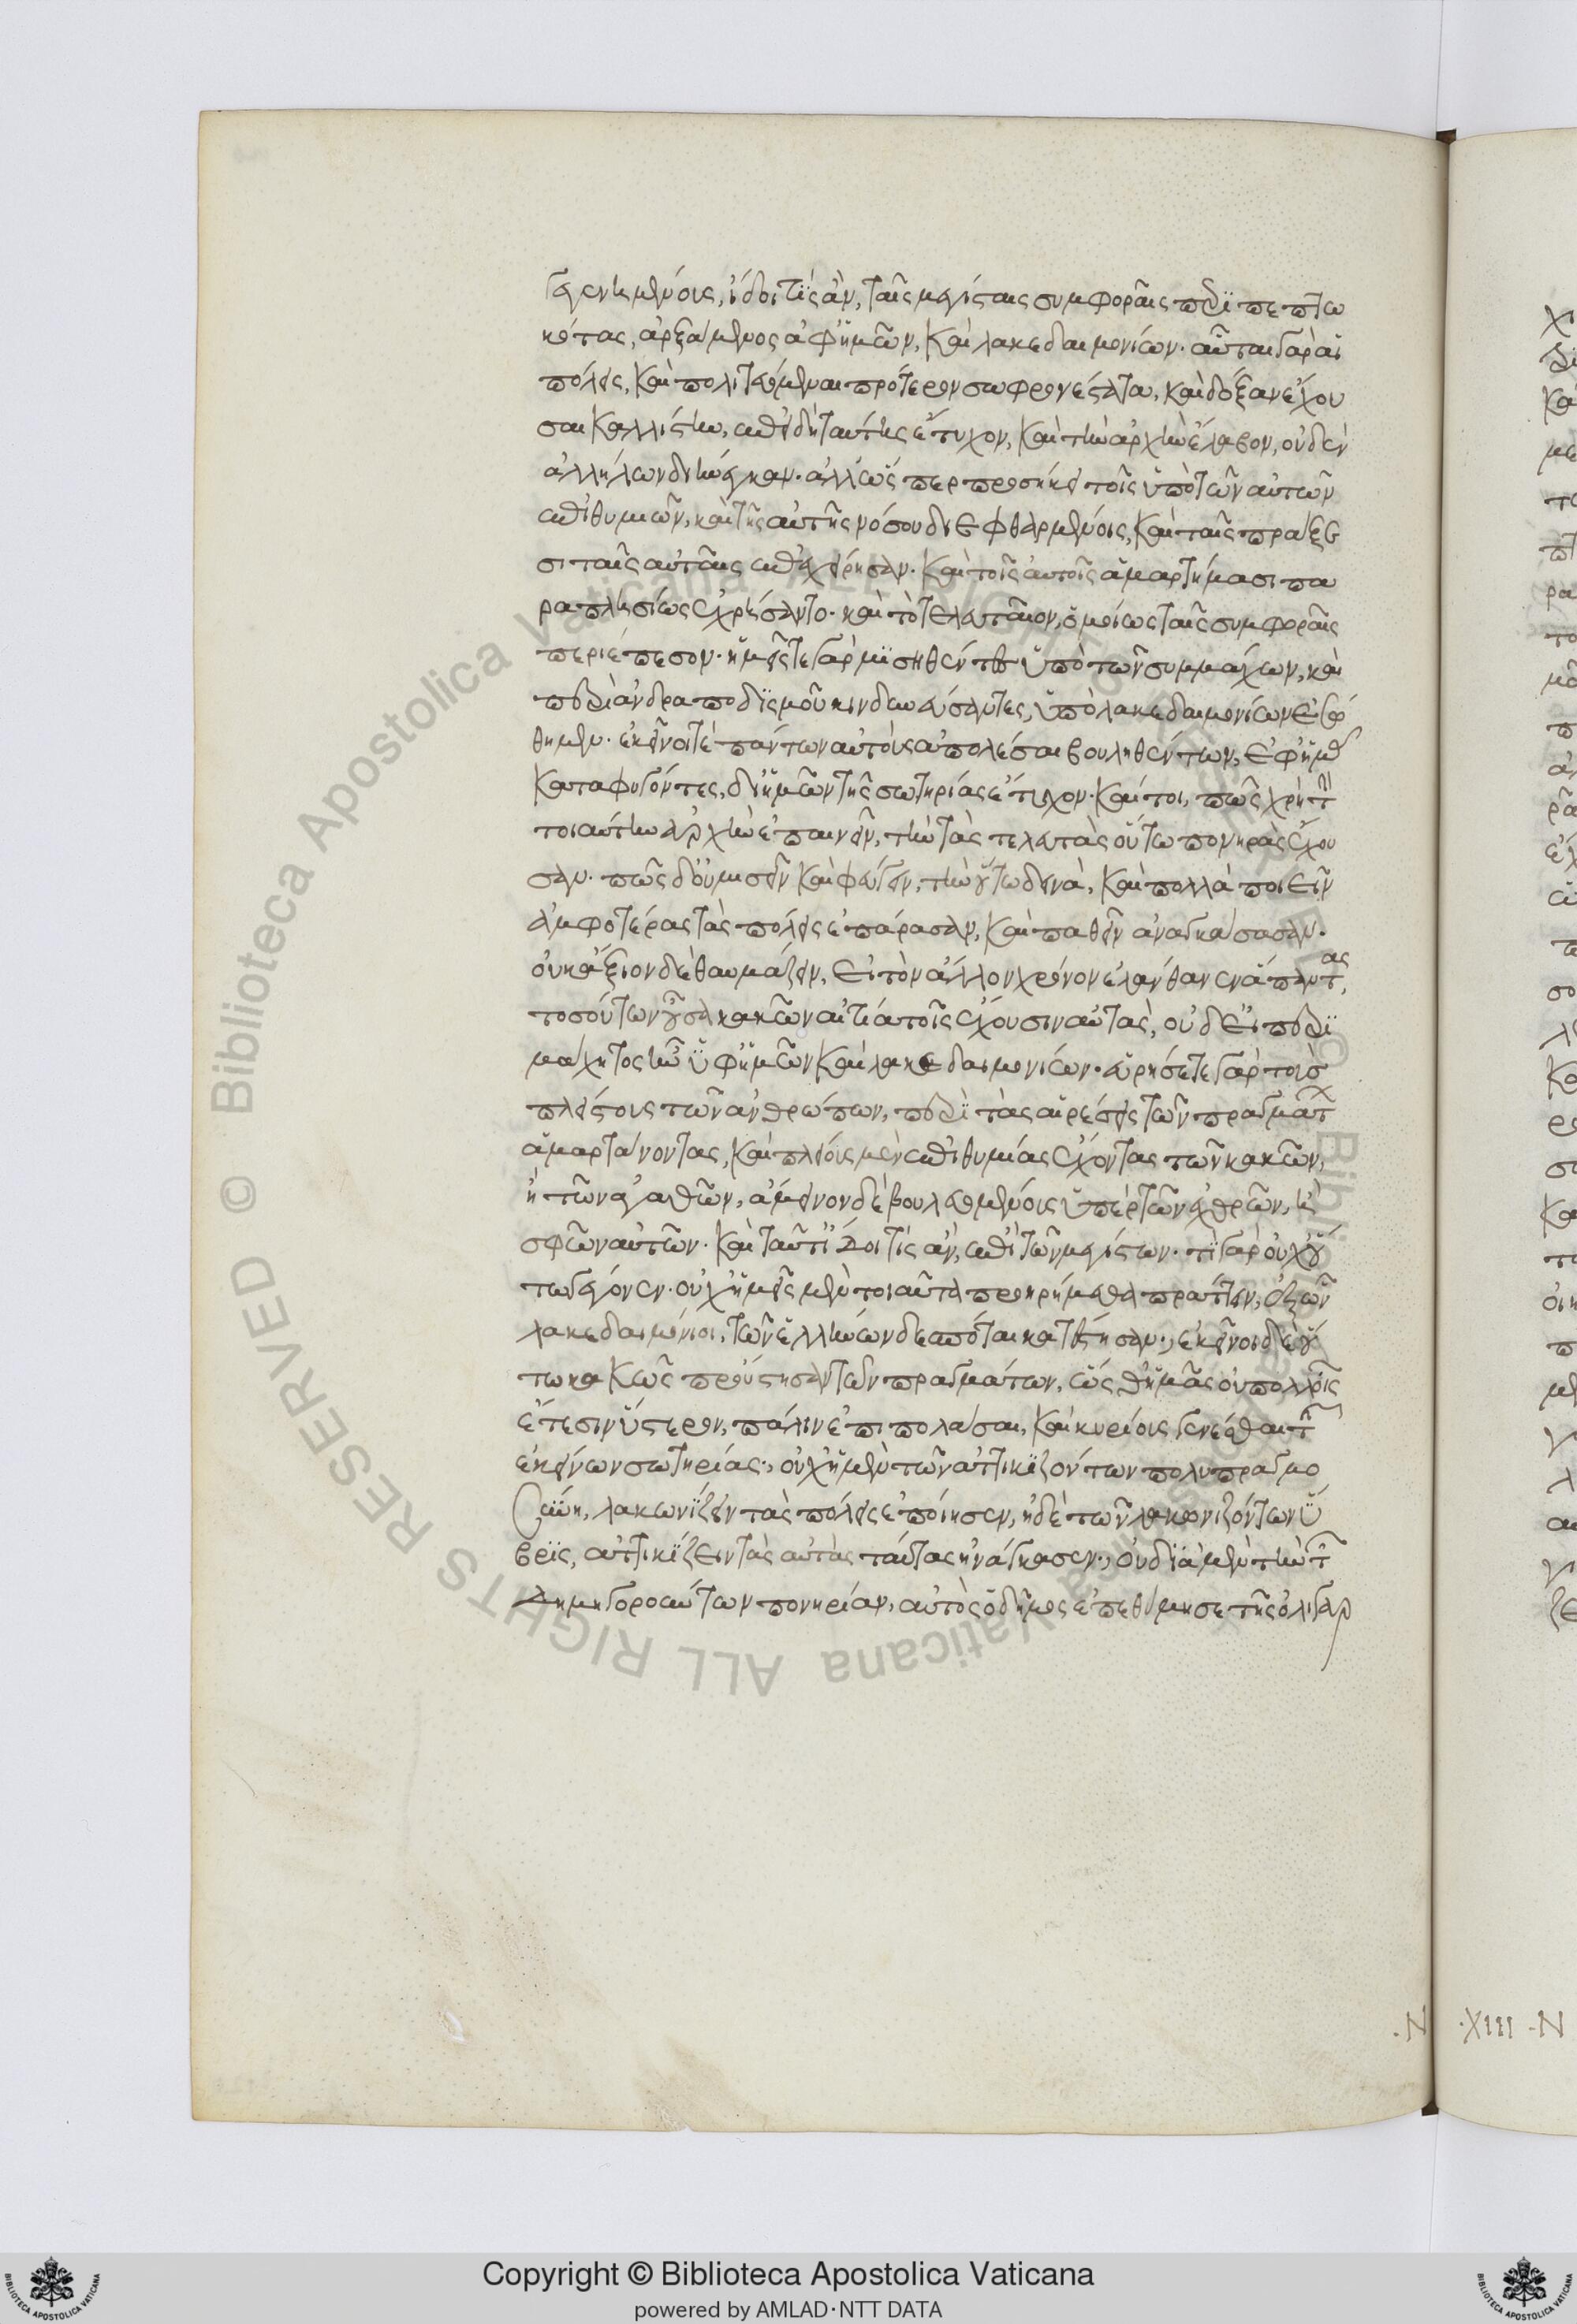 γεγενημένοις, ἴδοι τις ἂν, ταῖς μεγίσταις συμφοραῖς περιπεπτω
κότας, ἀρξάμενος ἀφ' ἡμῶν, καὶ λακεδαιμονίων. αὗται γὰρ αἱ
πόλεις, καὶ πολιτευόμεναι πρότερον σωφρονέστατα, καὶ δόξαν ἔχου
σαι καλλίστην, ἐπειδὴ ταύτης ἔτυχον, καὶ τὴν ἀρχὴν ἔλαβον, οὐδὲν
ἀλλήλων διήνεγκαν. ἀλλ' ὥσπερ προσήκει τοῖς ὑπὸ τῶν αὐτῶν
ἐπιθυμιῶν, καὶ τῆς αὐτῆς νόσου διεφθαρμένοις, καὶ ταῖς πράξε
σι ταῖς αὐταῖς ἐπεχείρησαν. καὶ τοῖς αὐτοῖς ἁμαρτήμασι πα
ραπλησίως ἐχρήσαντο. καὶ τὸ τελευταῖον, ὁμοίως ταῖς συμφοραῖς
περιέπεσον. ἡμεῖς τε γὰρ μισηθέντες ὑπὸ τῶν συμμάχων, καὶ
περὶ ἀνδραποδισμοῦ κινδυνεύσαντες, ὑπὸ λακεδαιμονίων ἐσώ
θημεν. ἐκεῖνοί τε πάντων αὐτοὺς ἀπολέσαι βουληθέντων, ἐφ' ἡμᾶς
καταφυγόντες, δι' ἡμῶν τῆς σωτηρίας ἔτυχον. καίτοι, πῶς χρὴ τὴν
τοιαύτην ἀρχὴν ἐπαινεῖν, τὴν τὰς τελευτὰς οὕτω πονηρὰς ἔχου
σαν. πῶς δ' οὐ μισεῖν καὶ φεύγειν, τὴν οὕτω δεινὰ, καὶ πολλὰ ποιεῖν
ἀμφοτέρας τὰς πόλεις ἐπάρασαν, καὶ παθεῖν ἀναγκάσασαν.
οὐκ ἄξιον δὲ θαυμάζειν, εἰ τὸν ἄλλον χρόνον ἐλάνθανεν ἅπαντας,
τοσούτων οὖσα κακῶν αἰτία τοῖς ἔχουσιν αὐτὰς, οὐδ' εἰ περι
μάχητος ἦν ὑφ' ἡμῶν καὶ λακεδαιμονίων. εὑρήσετε γὰρ τοὺς
πλείστους τῶν ἀνθρώπων, περὶ τὰς αἱρέσεις τῶν πραγμάτων
ἁμαρτάνοντας, καὶ πλείους μὲν ἐπιθυμίας ἔχοντας τῶν κακῶν,
ἢ τῶν ἀγαθῶν, ἄμεινον δὲ βουλευομένους ὑπὲρ τῶν ἐχθρῶν, ἢ
σφῶν αὐτῶν. καὶ ταῦτ' ἴδοι τίς ἂν, ἐπὶ τῶν μεγίστων. τί γὰρ οὐχ οὕ
τω γέγονεν. οὐχ ἡμεῖς μὲν τοιαῦτα προῃρήμεθα πράττειν, ἐξ ὧν
λακεδαιμόνιοι, τῶν ἑλλήνων δεσπόται κατέστησαν., ἐκεῖνοι δὲ οὕ
τω κακῶς προύστησαν τῶν πραγμάτων, ὥσθ' ἡμᾶς οὐ πολλοῖς
ἔτεσιν ὕστερον, πάλιν ἐπιπολάσαι, καὶ κυρίους γενέσθαι τῆς
ἐκείνων σωτηρίας., οὐχ ἡ μὲν τῶν ἀττικιζόντων πολυπραγμο
σύνη, λακωνίζειν τὰς πόλεις ἐποίησεν, ἡ δὲ τῶν λακωνιζόντων ὕ
βρις, ἀττικίζειν τὰς αὐτὰς ταύτας ἠνάγκασεν., οὐ διὰ μὲν τὴν τῶν
δημηγορούντων πονηρίαν, αὐτὸς ὁ δῆμος ἐπεθύμησε τῆς ὀλιγαρ
.N ·XIII -N
Copyright © Biblioteca Apostolica Vaticana
powered by AMLAD·NTT DATA